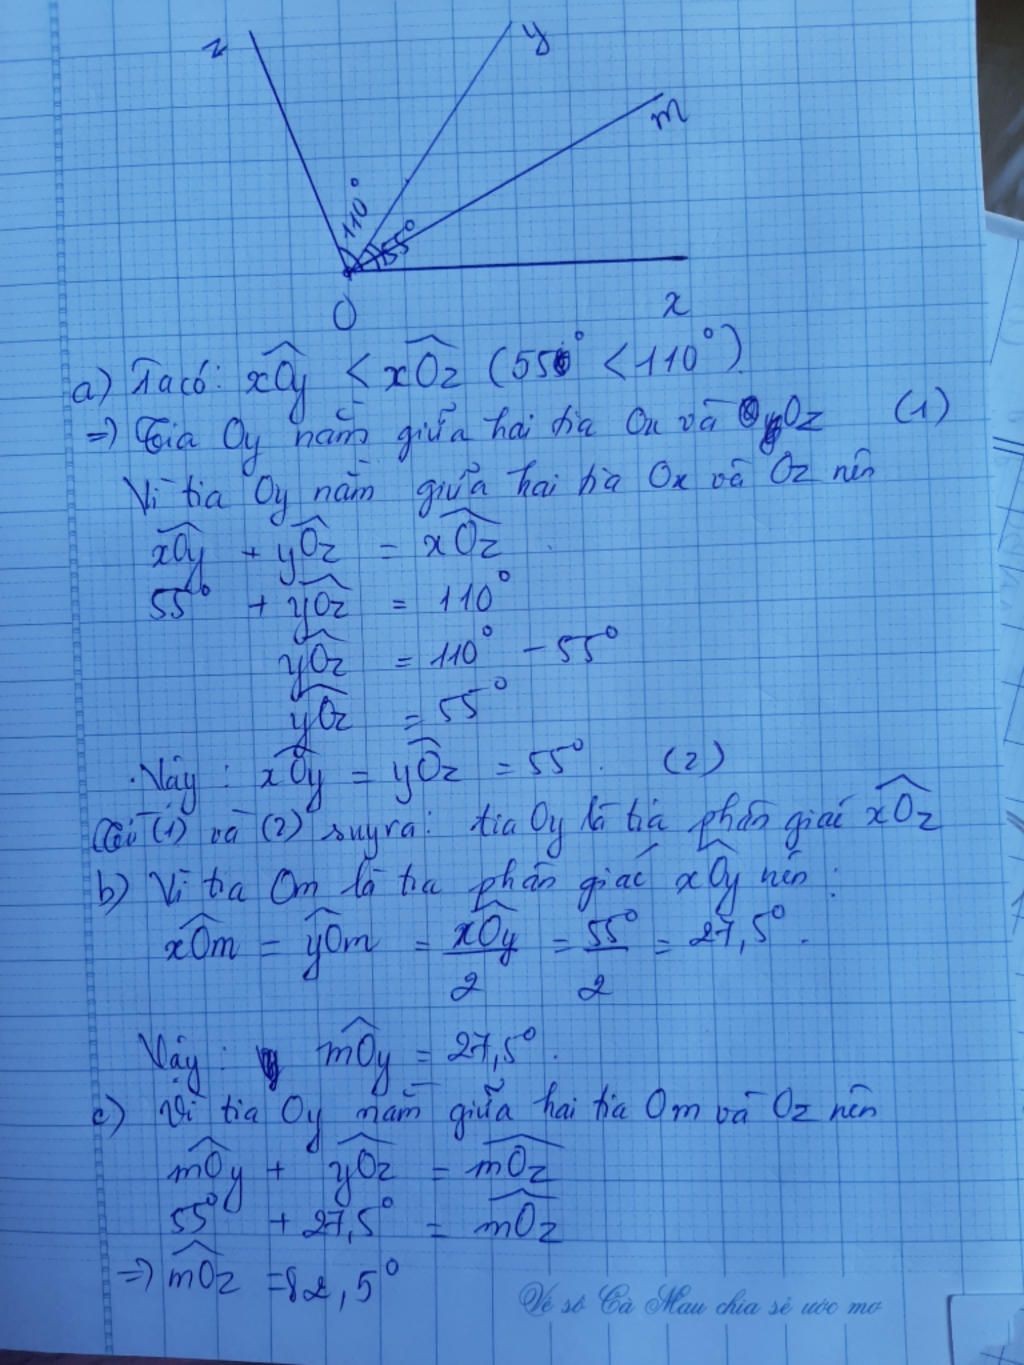 z
y
m
110°
55°
O
x
a) Ta có: xÔy < xÔz (55° < 110°).
=> Tia Oy nằm giữa hai tia Ox và Oz (1)
Vì tia Oy nằm giữa hai tia Ox và Oz nên
xÔy + yÔz = xÔz
55° + yÔz = 110°
yÔz = 110° - 55°
yÔz = 55°
Vậy: xÔy = yÔz = 55°. (2)
Từ (1) và (2) suy ra: tia Oy là tia phân giác xÔz
b) Vì tia Om là tia phân giác xÔy nên:
xÔm = yÔm = xÔy/2 = 55°/2 = 27,5°.
Vậy: mÔy = 27,5°.
c) Vì tia Oy nằm giữa hai tia Om và Oz nên
mÔy + yÔz = mÔz
55° + 27,5° = mÔz
=> mÔz = 82,5°
Vé số Cà Mau chia sẻ ước mơ